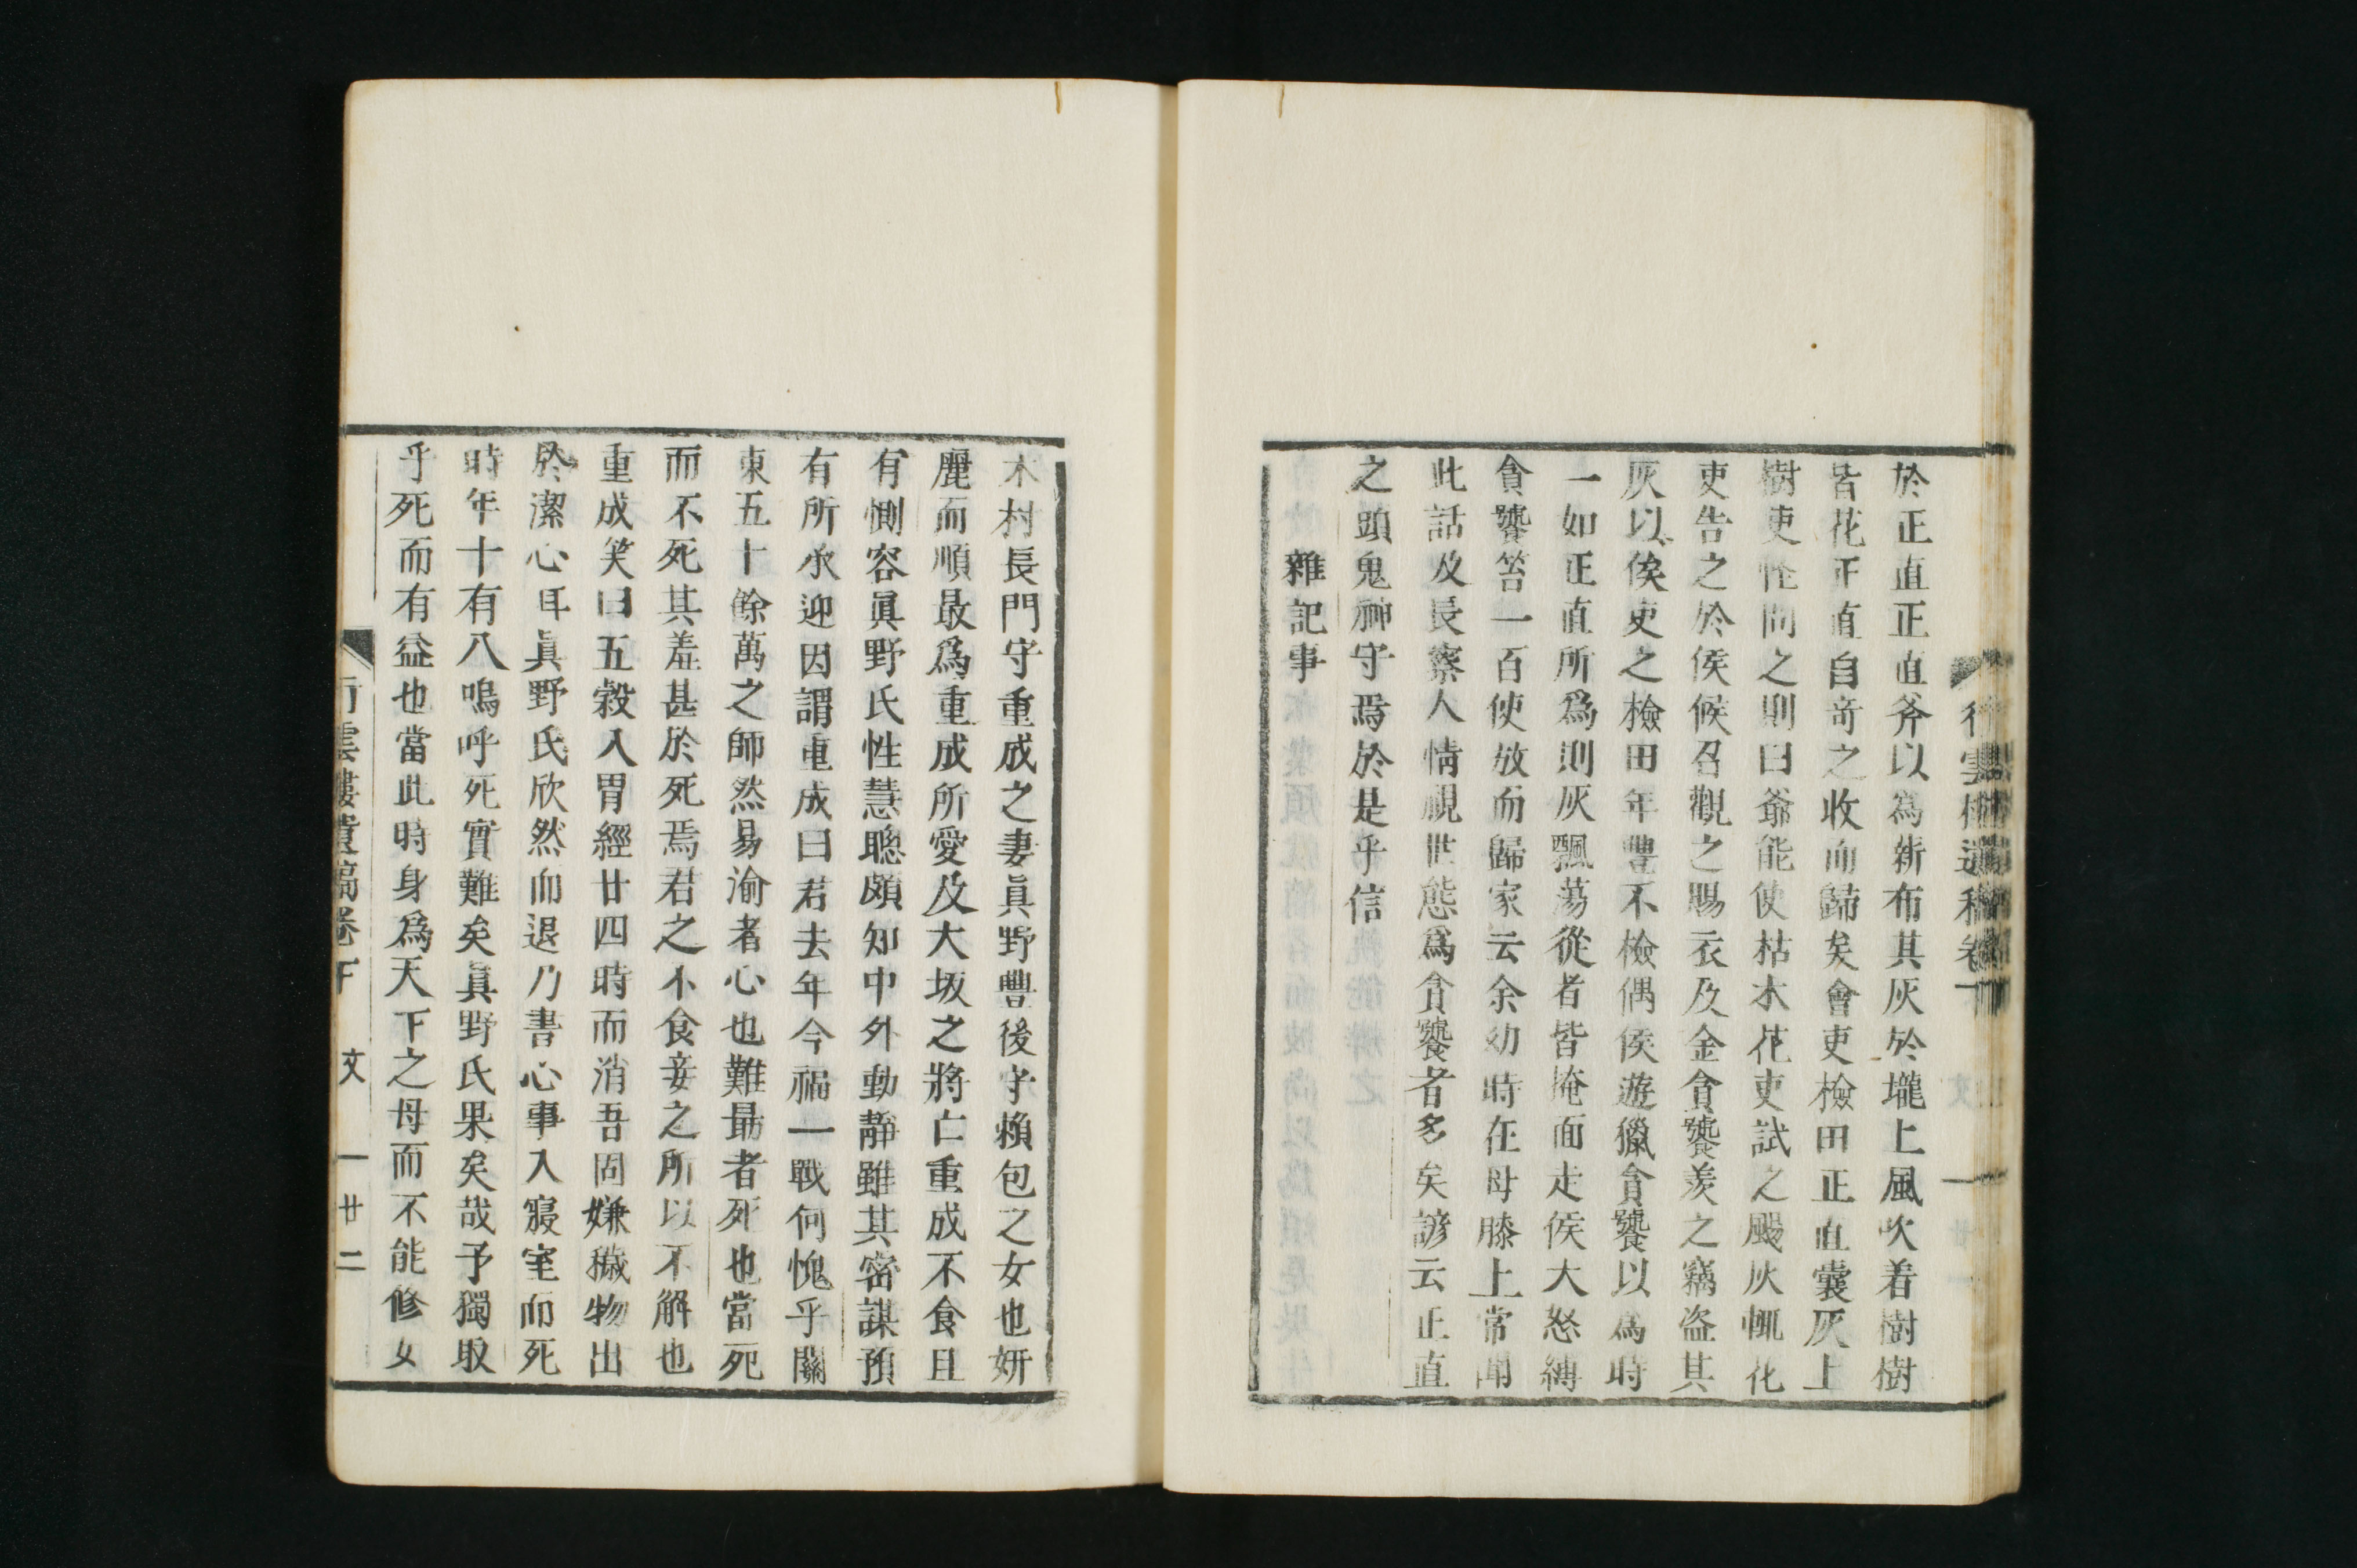 於正直正直斧以爲薪布其灰於壠上風吹着樹樹
皆花正直自奇之收而歸矣會吏檢田正直囊灰上
樹吏怪問之則曰爺能使枯木花吏試之颺灰輒花
吏告之於侯候召觀之賜衣及金貪饕羨之竊盗其
灰以俟吏之檢田年豐不檢偶侯遊獵貪饕以爲時
一如正直所爲則灰飄蕩從者皆掩面走侯大怒縛
貪饕笞一百使放而歸家云余幼時在母膝上常聞
此話及長察人情覘世態爲貪饕者多矣諺云正直
之頭鬼神守焉於是乎信
雜記事
木村長門守重成之妻眞野豐後守賴包之女也妍
麗而順最爲重成所愛及大坂之將亡重成不食且
有惻容眞野氏性慧聰頗知中外動靜雖其密謀預
有所承迎因謂重成曰君去年今福一戰何愧乎關
東五十餘萬之師然易渝者心也難最者死也當死
而不死其羞甚於死焉君之不食妾之所以不解也
重成笑曰五穀入胃經廿四時而消吾固嫌穢物出
於潔心耳眞野氏欣然而退乃書心事入寢室而死
時年十有八嗚呼死實難矣眞野氏果矣哉予獨取
乎死而有益也當此時身爲天下之母而不能修女
行雲樓遺稿卷下 文 一 廿二